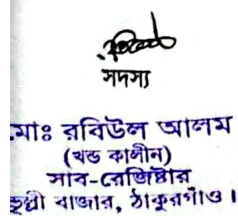 সদস্য
মোঃ রবিউল আলম
(খন্ড কালীন)
সাব-রেজিষ্টার
বাজার, ঠাকুরগাঁও।